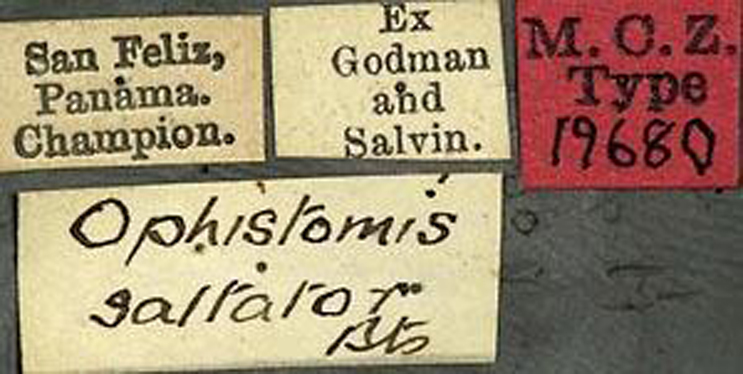 San Feliz,
Panama.
Champion.
Ex
Godman
and
Salvin.
M.C.Z.
Type
19680
Ophistomis
saltator
Bts